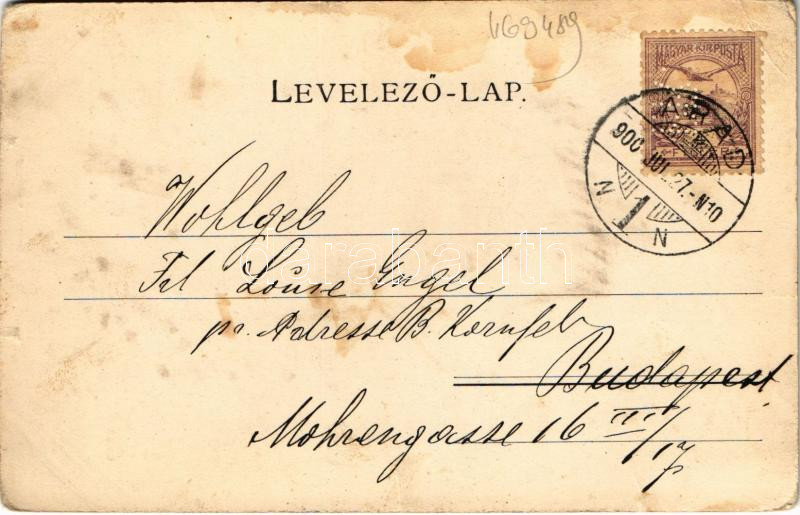 V69489
MAGYAR KIR. POSTA
LEVELEZŐ-LAP.
ARAD
900 JUL. 27.-N10
N 1 N
Wohlgeb
Frl Louise Engel
pr. Adresse B. Kornfeld
Budapest
Mohrengasse 16 III/17
darabanth